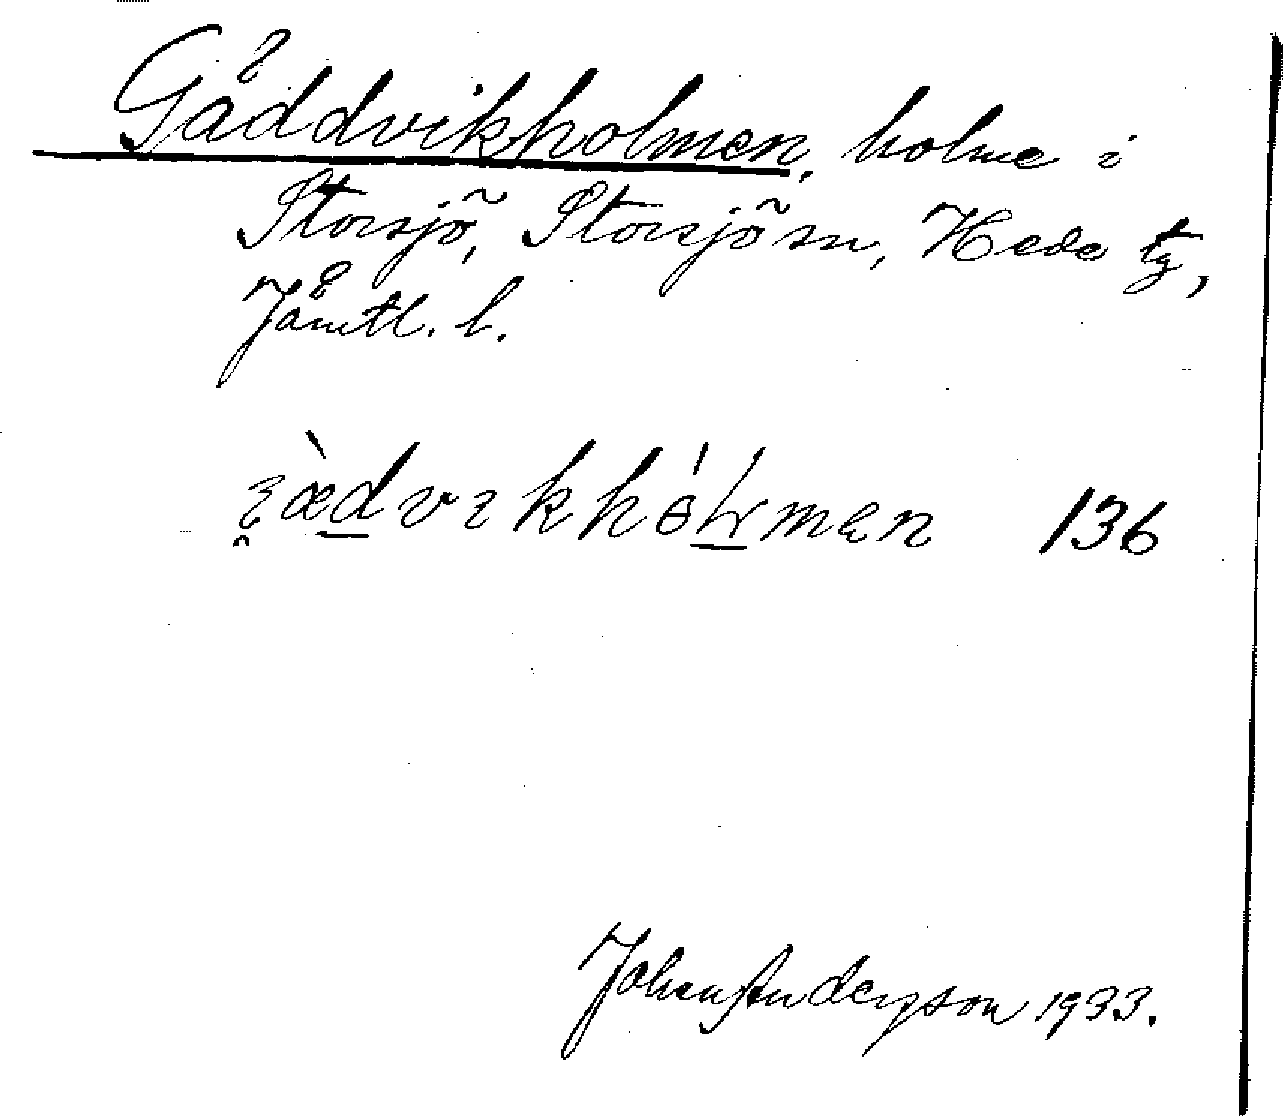 Gäddvikholmen, holme i
Storsjö, Storsjö sn, Hede tg,
Jämtl. l.
136
Johan Anderson 1933.